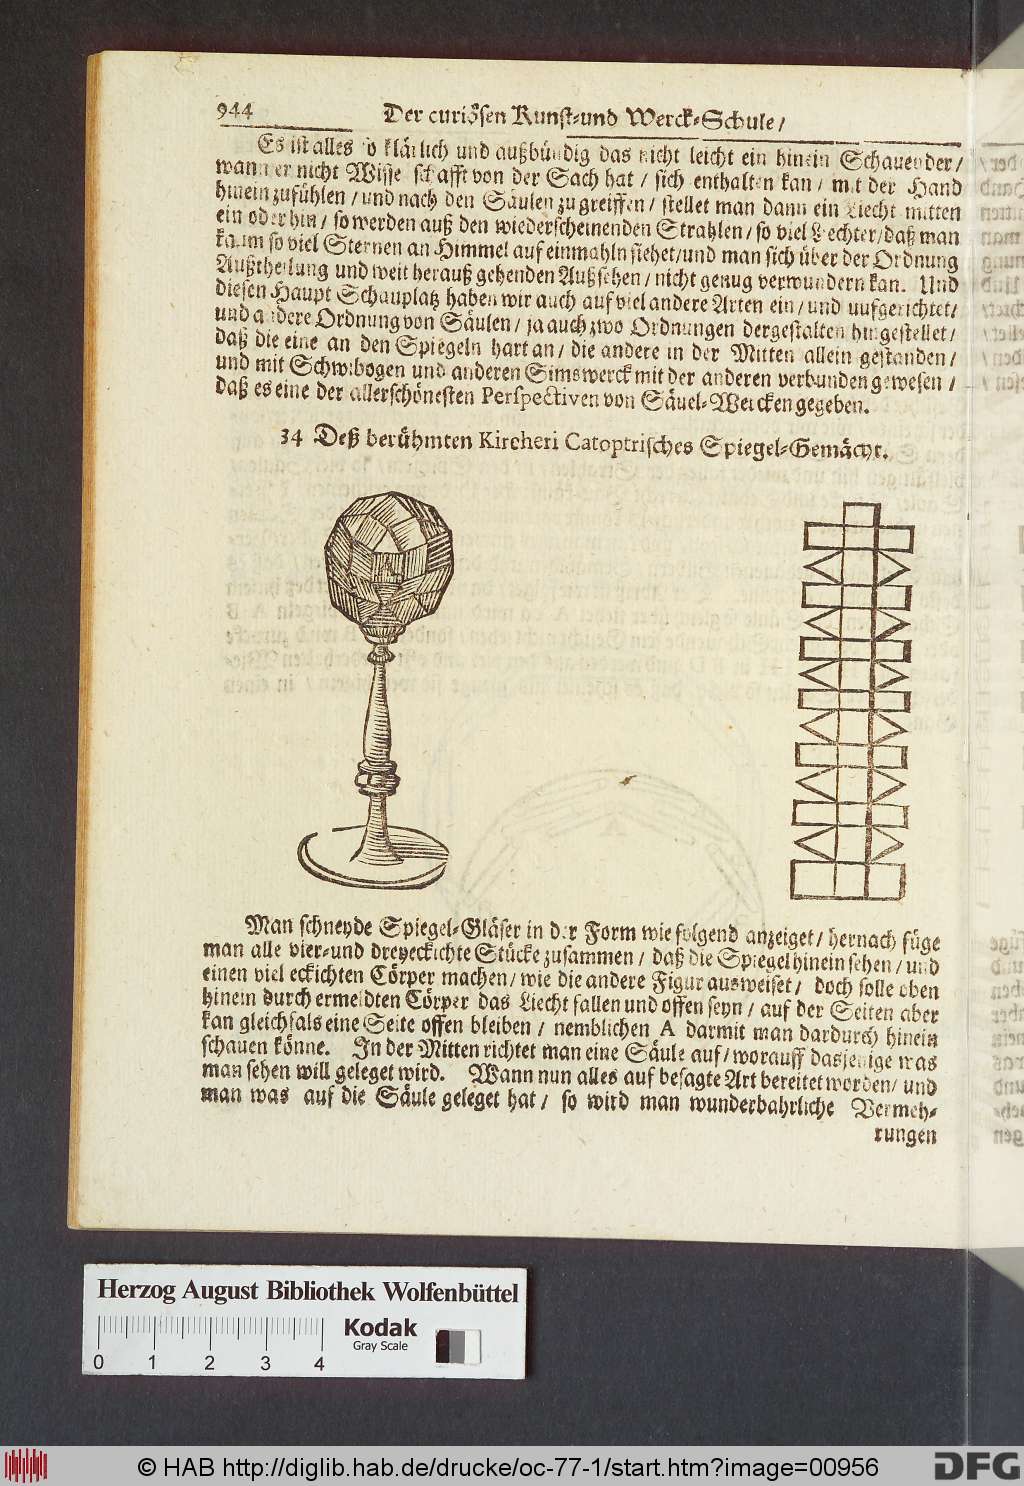 944
Der curiösen Kunst-und Werck-Schule/
Es ist alles so klärlich und außbündig das nicht leicht ein hinein Schauender/
wann er nicht Wisseschafft von der Sach hat / sich enthalten kan / mit der Hand
hinein zufühlen / und nach den Säulen zu greiffen / stellet man dann ein Liecht mitten
ein oder hin / so werden auß den wiederscheinenden Strahlen / so viel Liechter/daß man
kaum so viel Sternen an Himmel auf einmahln siehet/und man sich über der Ordnung
Außtheilung und weit herauß gehenden Außsehen / nicht genug verwundern kan. Und
diesen Haupt Schauplatz haben wir auch auf viel andere Arten ein / und uufgerichtet/
und andere Ordnung von Säulen / ja auch zwo Ordnungen dergestalten hingestellet/
daß die eine an den Spiegeln hart an / die andere in der Mitten allein gestanden /
und mit Schwibogen und anderen Simswerck mit der anderen verbunden gewesen /
daß es eine der allerschönesten Perspectiven von Säuel-Wercken gegeben.
34 Deß berühmten Kircheri Catoptrisches Spiegel-Gemächt.
A
Man schneyde Spiegel-Gläser in der Form wie folgend anzeiget / hernach füge
man alle vier-und dreyeckichte Stücke zusammen / daß die Spiegel hinein sehen / und
einen viel eckichten Cörper machen / wie die andere Figur ausweiset / doch solle oben
hinein durch ermeldten Cörper das Liecht fallen und offen seyn / auf der Seiten aber
kan gleichfals eine Seite offen bleiben / nemblichen A darmit man dardurch hinein
schauen könne. In der Mitten richtet man eine Säule auf / worauff dasjenige was
man sehen will geleget wird. Wann nun alles auf besagte Art bereitet worden / und
man was auf die Säule geleget hat / so wird man wunderbahrliche Vermeh-
rungen
Herzog August Bibliothek Wolfenbüttel
Kodak
Gray Scale
0 1 2 3 4
© HAB http://diglib.hab.de/drucke/oc-77-1/start.htm?image=00956
DFG